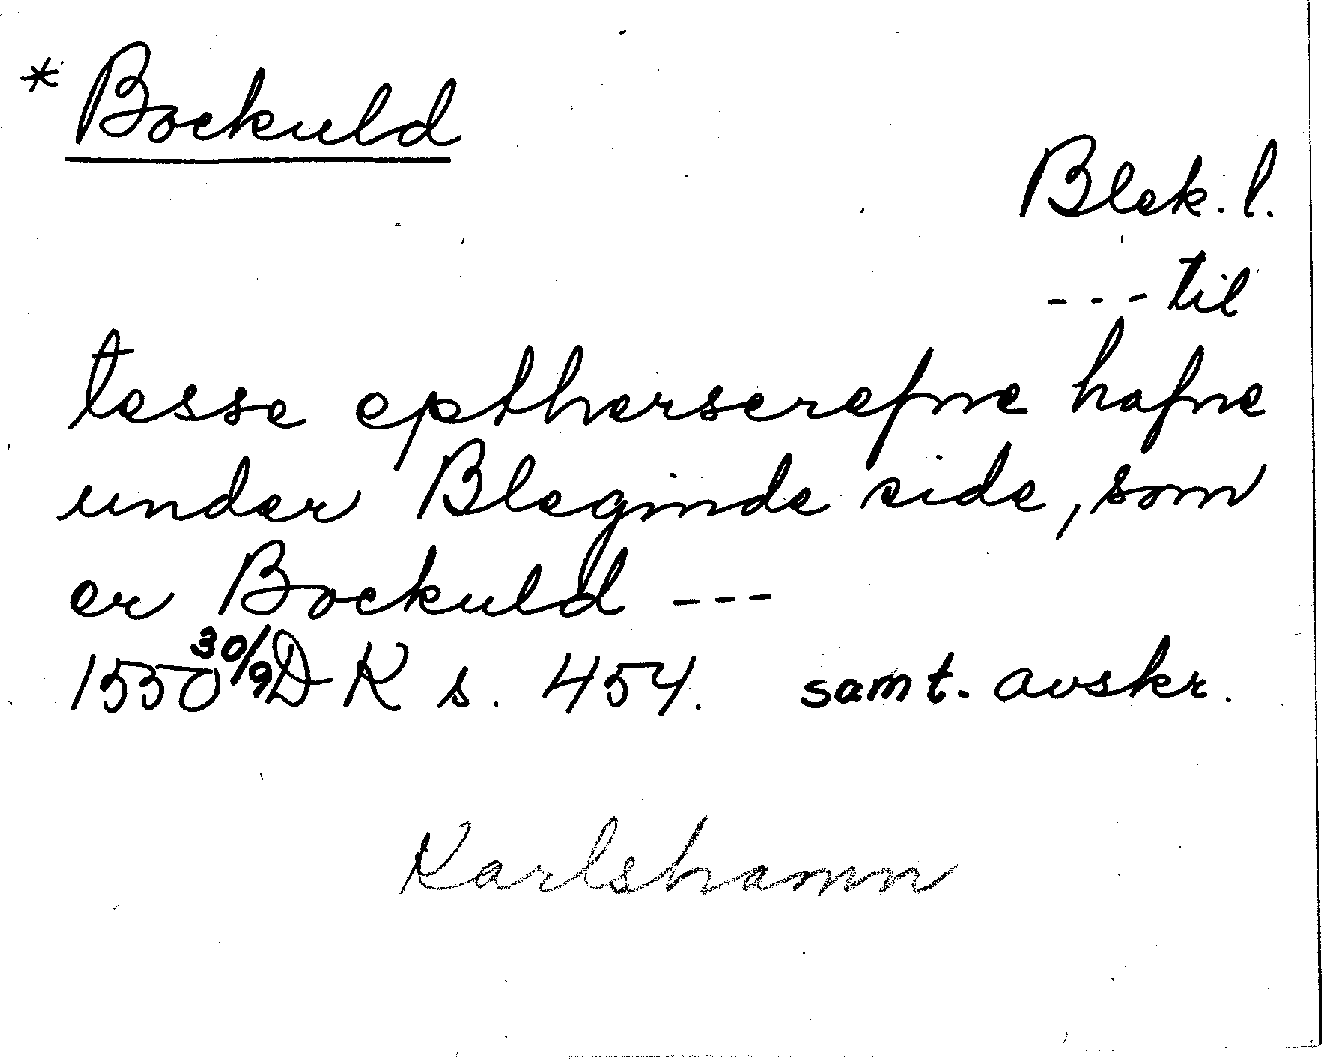 * Bockuld
Blek. l.
--- til
tesse epttherscrefne hafne
under Bleginde side, som
er Bockuld ---
1550 30/9 DK s. 454. samt. avskr.
Karlshamn